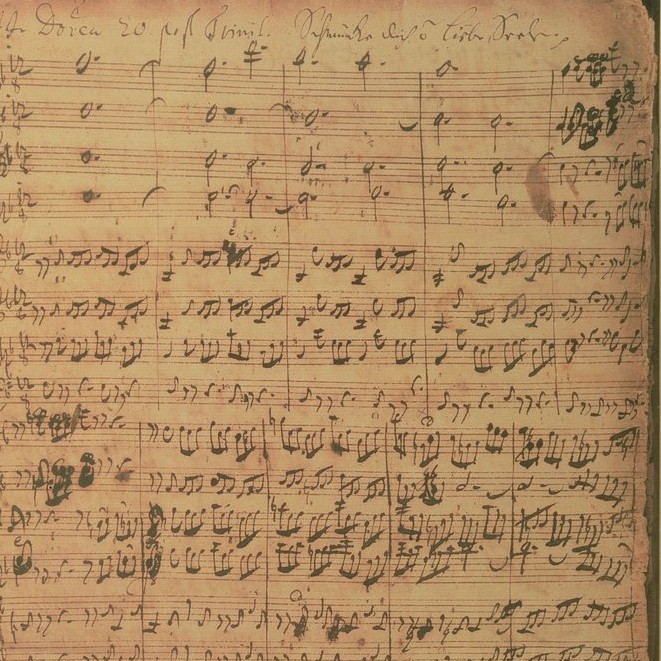 Doica 20 post Trinit. Schmücke dich ô liebe Seele.